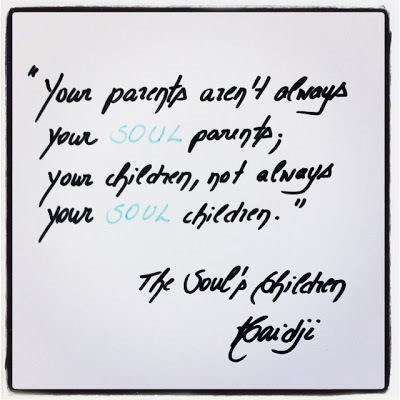 "Your parents aren't always
your SOUL parents;
your children, not always
your SOUL children."
The Soul's Children
Haidji